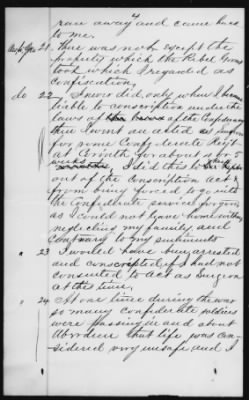 4
ran away and came home
to me.
Ans to Int 21. There was not except the
property which the Rebel Govmt
took which I regarded as
confiscation.
do 22 I never did, only when I became
liable to conscription under the
laws of the Confederacy
I went an acted as surgeon
for some Confederate Regiment
at Corinth for about 2 or 3
I did this to keep
out of the Conscription and
from being forced to go into
the Confederate service
as I could not leave home without
neglecting my family, and
contrary to my sentiments
" 23 I would have been arrested
and conscripted if I had not
consented to act as Surgeon
at this time.
" 24 At one time during the war
so many confederate soldiers
were passing in and about
Aberdeen that life was con-
sidered very unsafe and I